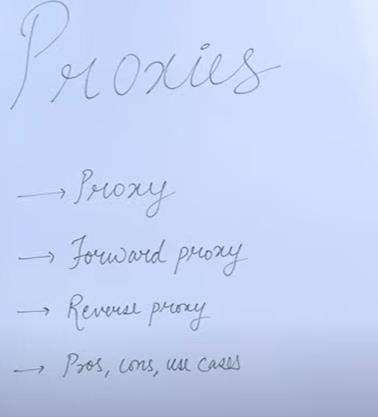 Proxies
→ Proxy
→ Forward proxy
→ Reverse proxy
→ Pros, cons, use cases